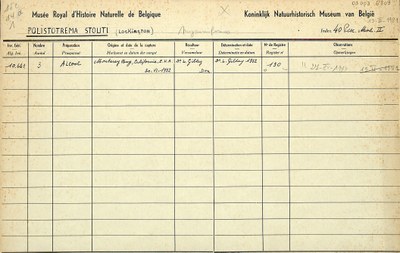 Musée Royal d'Histoire Naturelle de Belgique
Koninklijk Natuurhistorisch Museum van België
POLISTOTREMA STOUTI (Lockington)
Inv. Gén.
Alg. Inv.
Nombre
Aantal
Préparation
Praeparaat
Origine et date de la capture
Herkomst en datum der vangst
Récolteur
Verzamelaar
Détermination et date
Determinatie en datum
Nº du Registre
Register nº
Observations
Opmerkingen
10.661
3
Alcool
Monterey Bay, California, U.S.A.
Dr L. Giltay
Dr L. Giltay 1932
190